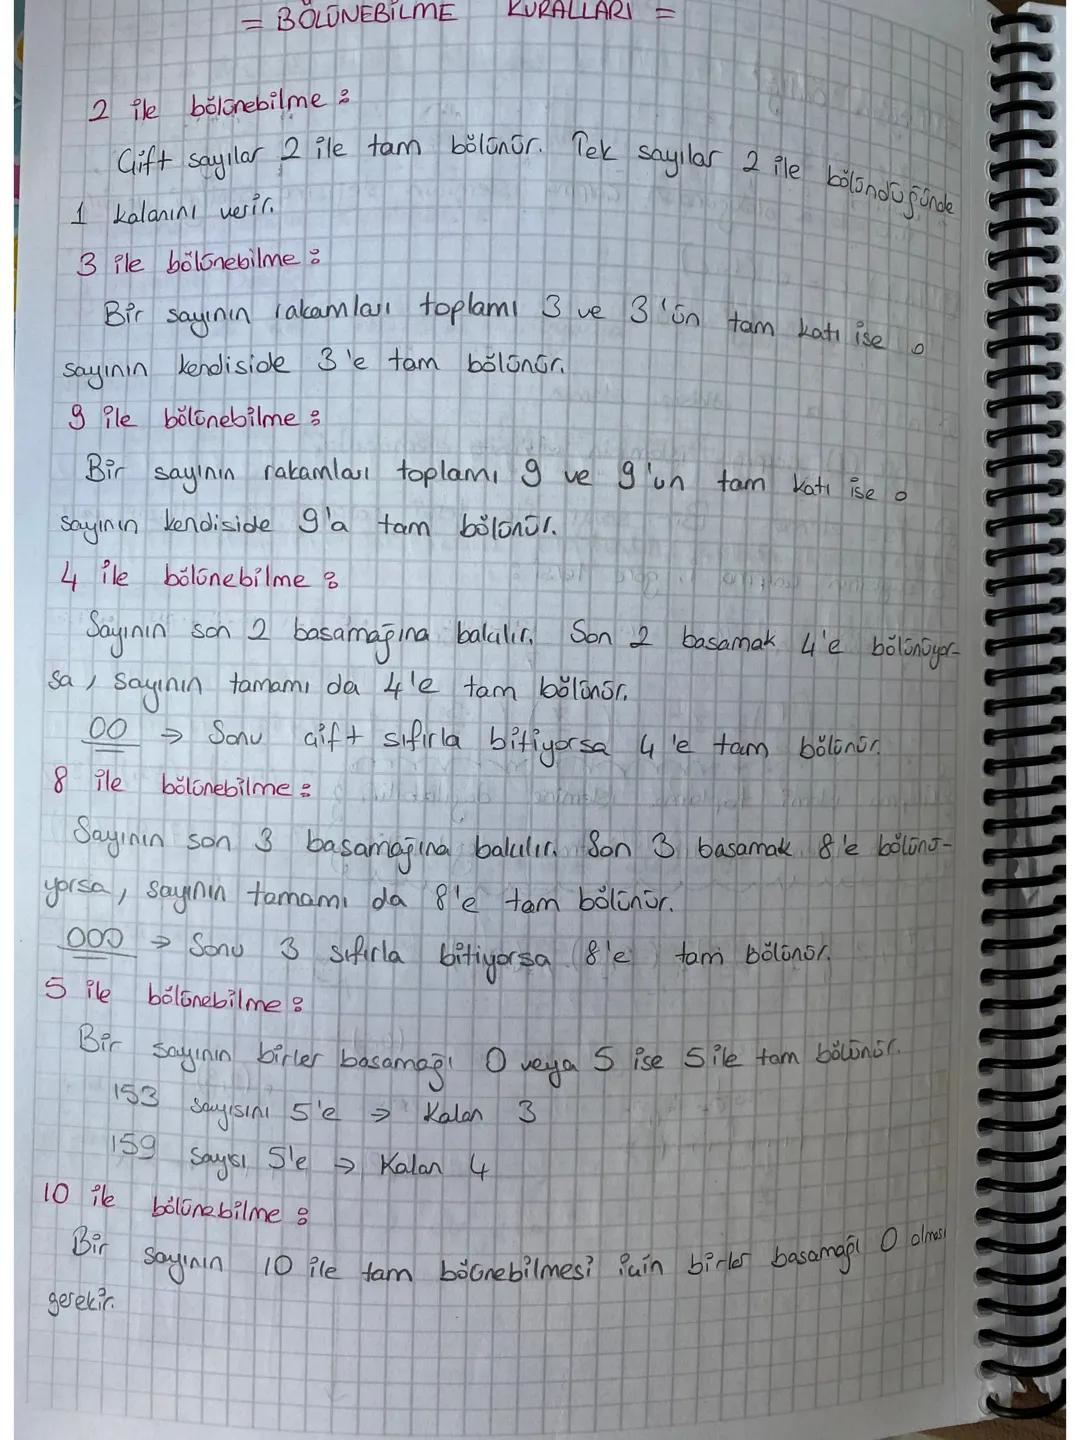 = BÖLÜNEBİLME KURALLARI =
2 ile bölünebilme :
Çift sayılar 2 ile tam bölünür. Tek sayılar 2 ile bölündüğünde
1 kalanını verir.
3 ile bölünebilme :
Bir sayının rakamları toplamı 3 ve 3'ün tam katı ise o
sayının kendiside 3'e tam bölünür.
9 ile bölünebilme :
Bir sayının rakamları toplamı 9 ve 9'un tam katı ise o
sayının kendiside 9'a tam bölünür.
4 ile bölünebilme :
Sayının son 2 basamağına bakılır. Son 2 basamak 4'e bölünüyor-
sa, sayının tamamı da 4'e tam bölünür.
00 → Sonu çift sıfırla bitiyorsa 4'e tam bölünür.
8 ile bölünebilme :
Sayının son 3 basamağına bakılır. Son 3 basamak 8'e bölünü-
yorsa, sayının tamamı da 8'e tam bölünür.
000 → Sonu 3 sıfırla bitiyorsa 8'e tam bölünür.
5 ile bölünebilme :
Bir sayının birler basamağı 0 veya 5 ise 5 ile tam bölünür.
153 sayısını 5'e → Kalan 3
159 sayısı 5'e → Kalan 4
10 ile bölünebilme :
Bir sayının 10 ile tam bölünebilmesi için birler basamağı 0 olması
gerekir.